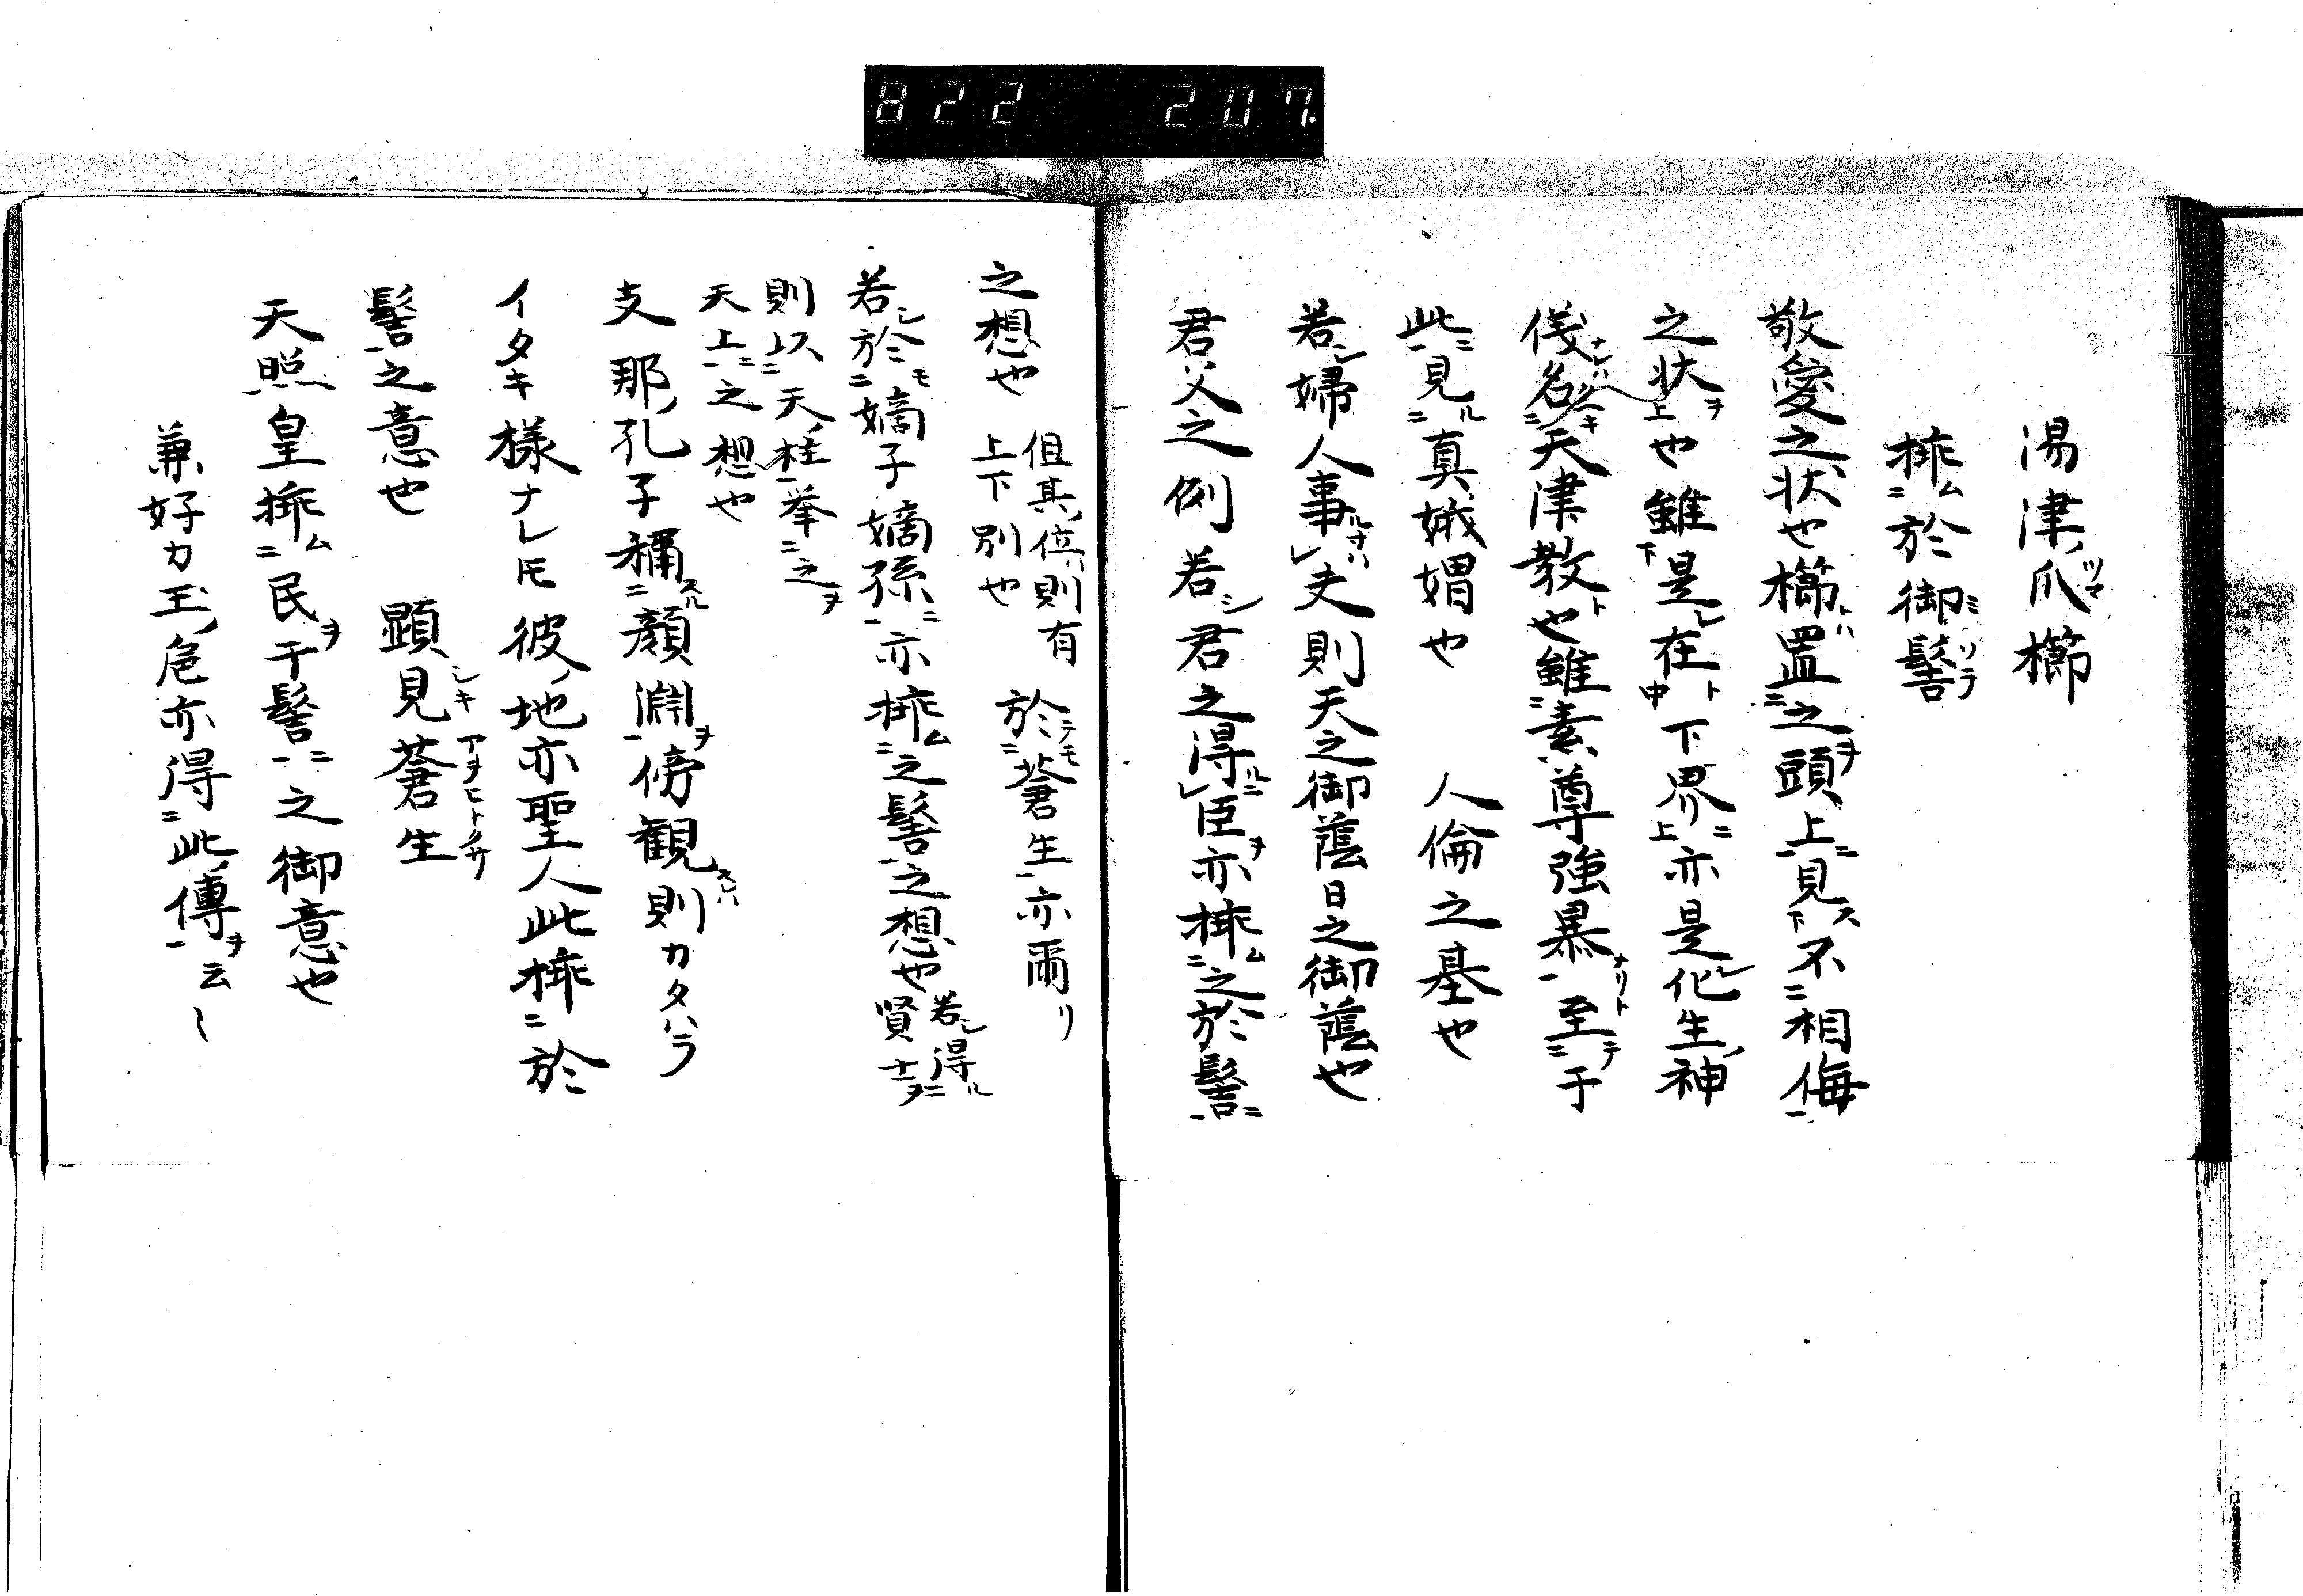 822 207.
湯津爪櫛
挿於御髻
敬愛之状也櫛置之頭上見不相侮
之状也雖是在下界亦是化生神
伐名天津教也雖素尊強暴至于
此見真娥媚也 人倫之基也
若婦人事夫則天之御蔭日之御蔭也
君父之例若君之得臣亦挿之於髻
之想也 但其位則有上下別也 於蒼生亦爾リ
若於嫡子嫡孫亦挿之髻之想也 若得賢士
則以天柱挙之
天上之想也
支那孔子稱顔淵傍観則カタハラ
イタキ様ナレ𪜈彼地亦聖人此挿於
髻之意也 顕見蒼生
天照皇挿民于髻之御意也
兼好カ玉巵亦得此傳云〻